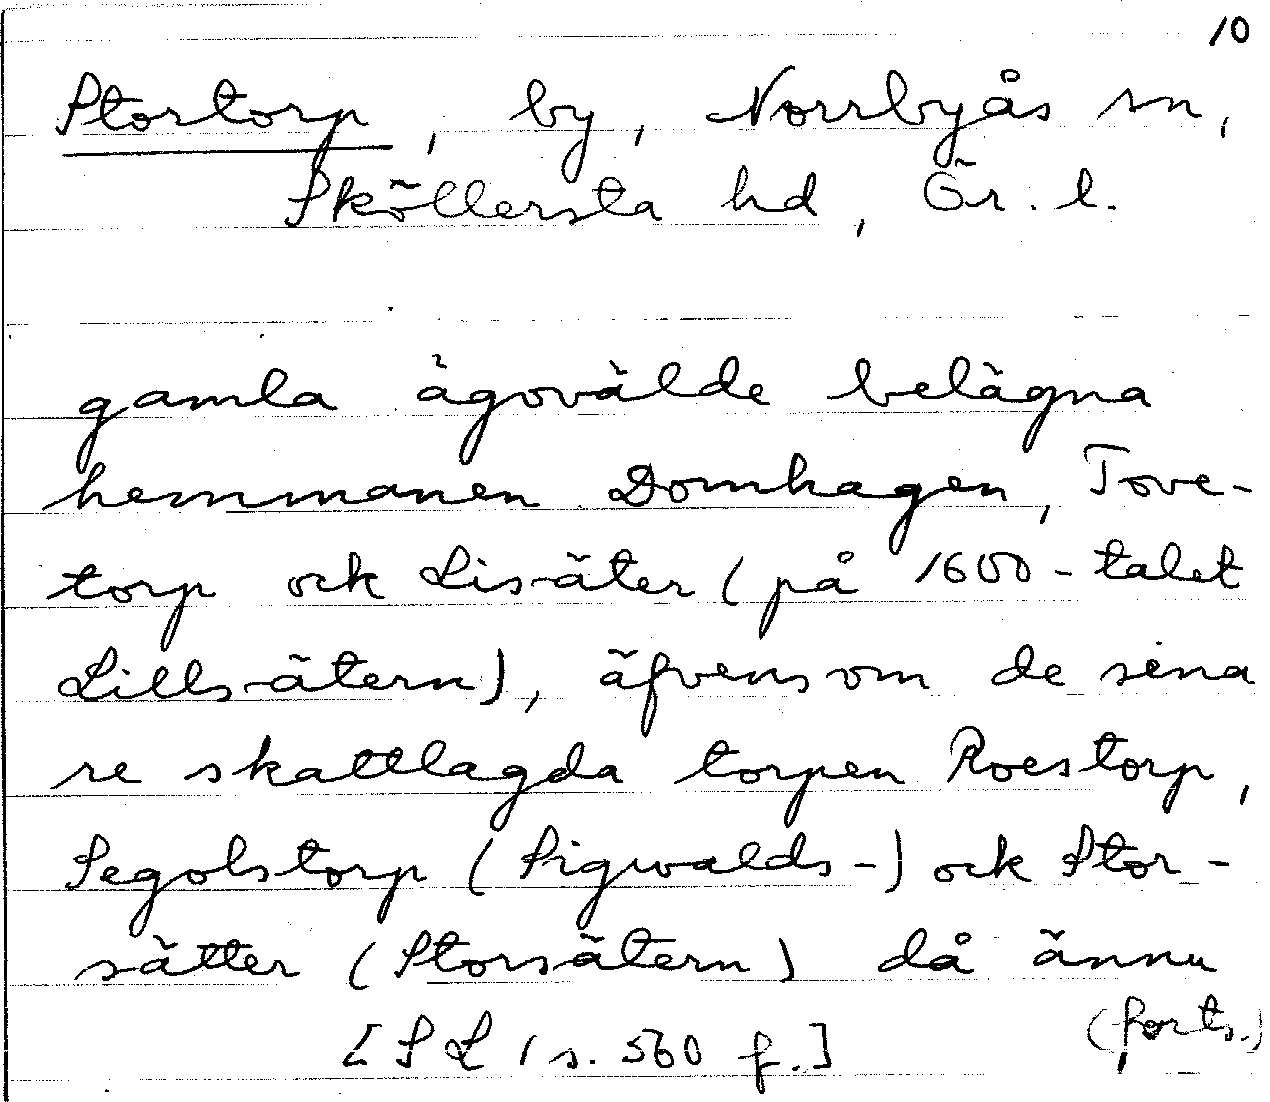 10
Stortorp, by, Norrbyås sn,
Sköllersta hd, Ör. l.
gamla ägovälde belägna
hemmanen Domhagen, Tove-
torp ock Lisäter (på 1600-talet
Lillsätern), äfvensom de sena
re skattlagda torpen Roestorp,
Segolstorp (Sigwalds-) ock Stor-
sätter (Storsätern) då ännu
(forts.)
[SL 1 s. 560 f.]